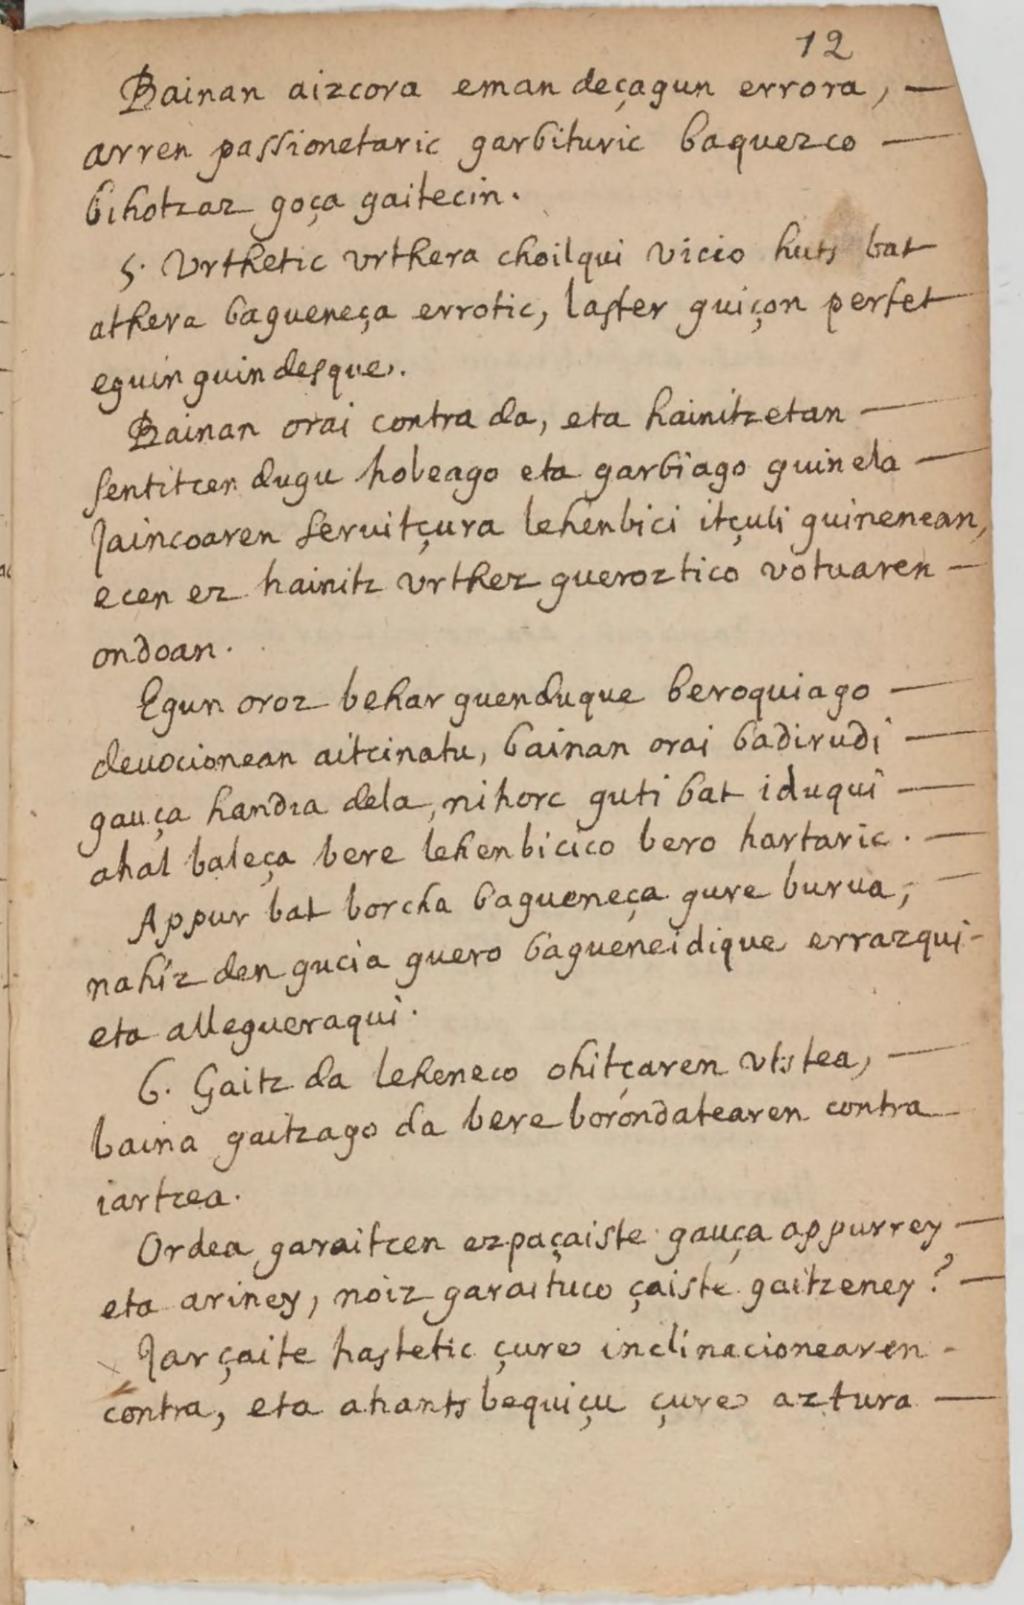 12
Bainan aizcora eman deçagun errora, —
arren passionetaric garbituric baquezco —
bihotzaz goça gaitecin.
5. Vrthetic vrthera choilqui vicio huts bat
athera bagueneça errotic, laster guiçon perfet
eguin guindesque.
Bainan orai contra da, eta hainitzetan —
sentitcen dugu hobeago eta garbiago guinela —
Jaincoaren seruitçura lehenbici itçuli guinenean,
ecen ez hainitz vrthez gueroztico votuaren —
ondoan.
Egun oroz behar guenduque beroquiago —
deuocionean aitcinatu, bainan orai badirudi —
gauça handia dela, nihorc guti bat iduqui —
ahal baleça bere lehenbicico bero hartaric. —
Appur bat borcha bagueneça gure burua, —
nahiz den gucia guero bagueneidique errazqui -
eta allegueraqui.
6. Gaitz da leheneco ohitçaren vtstea, —
baina gaitzago da bere borondatearen contra —
iartzea.
Ordea garaitcen ezpaçaiste gauça appurrey —
eta ariney, noiz garaituco çaiste gaitzeney? —
Jar çaite hastetic çure inclinacionearen -
contra, eta ahants bequiçu çure aztura —